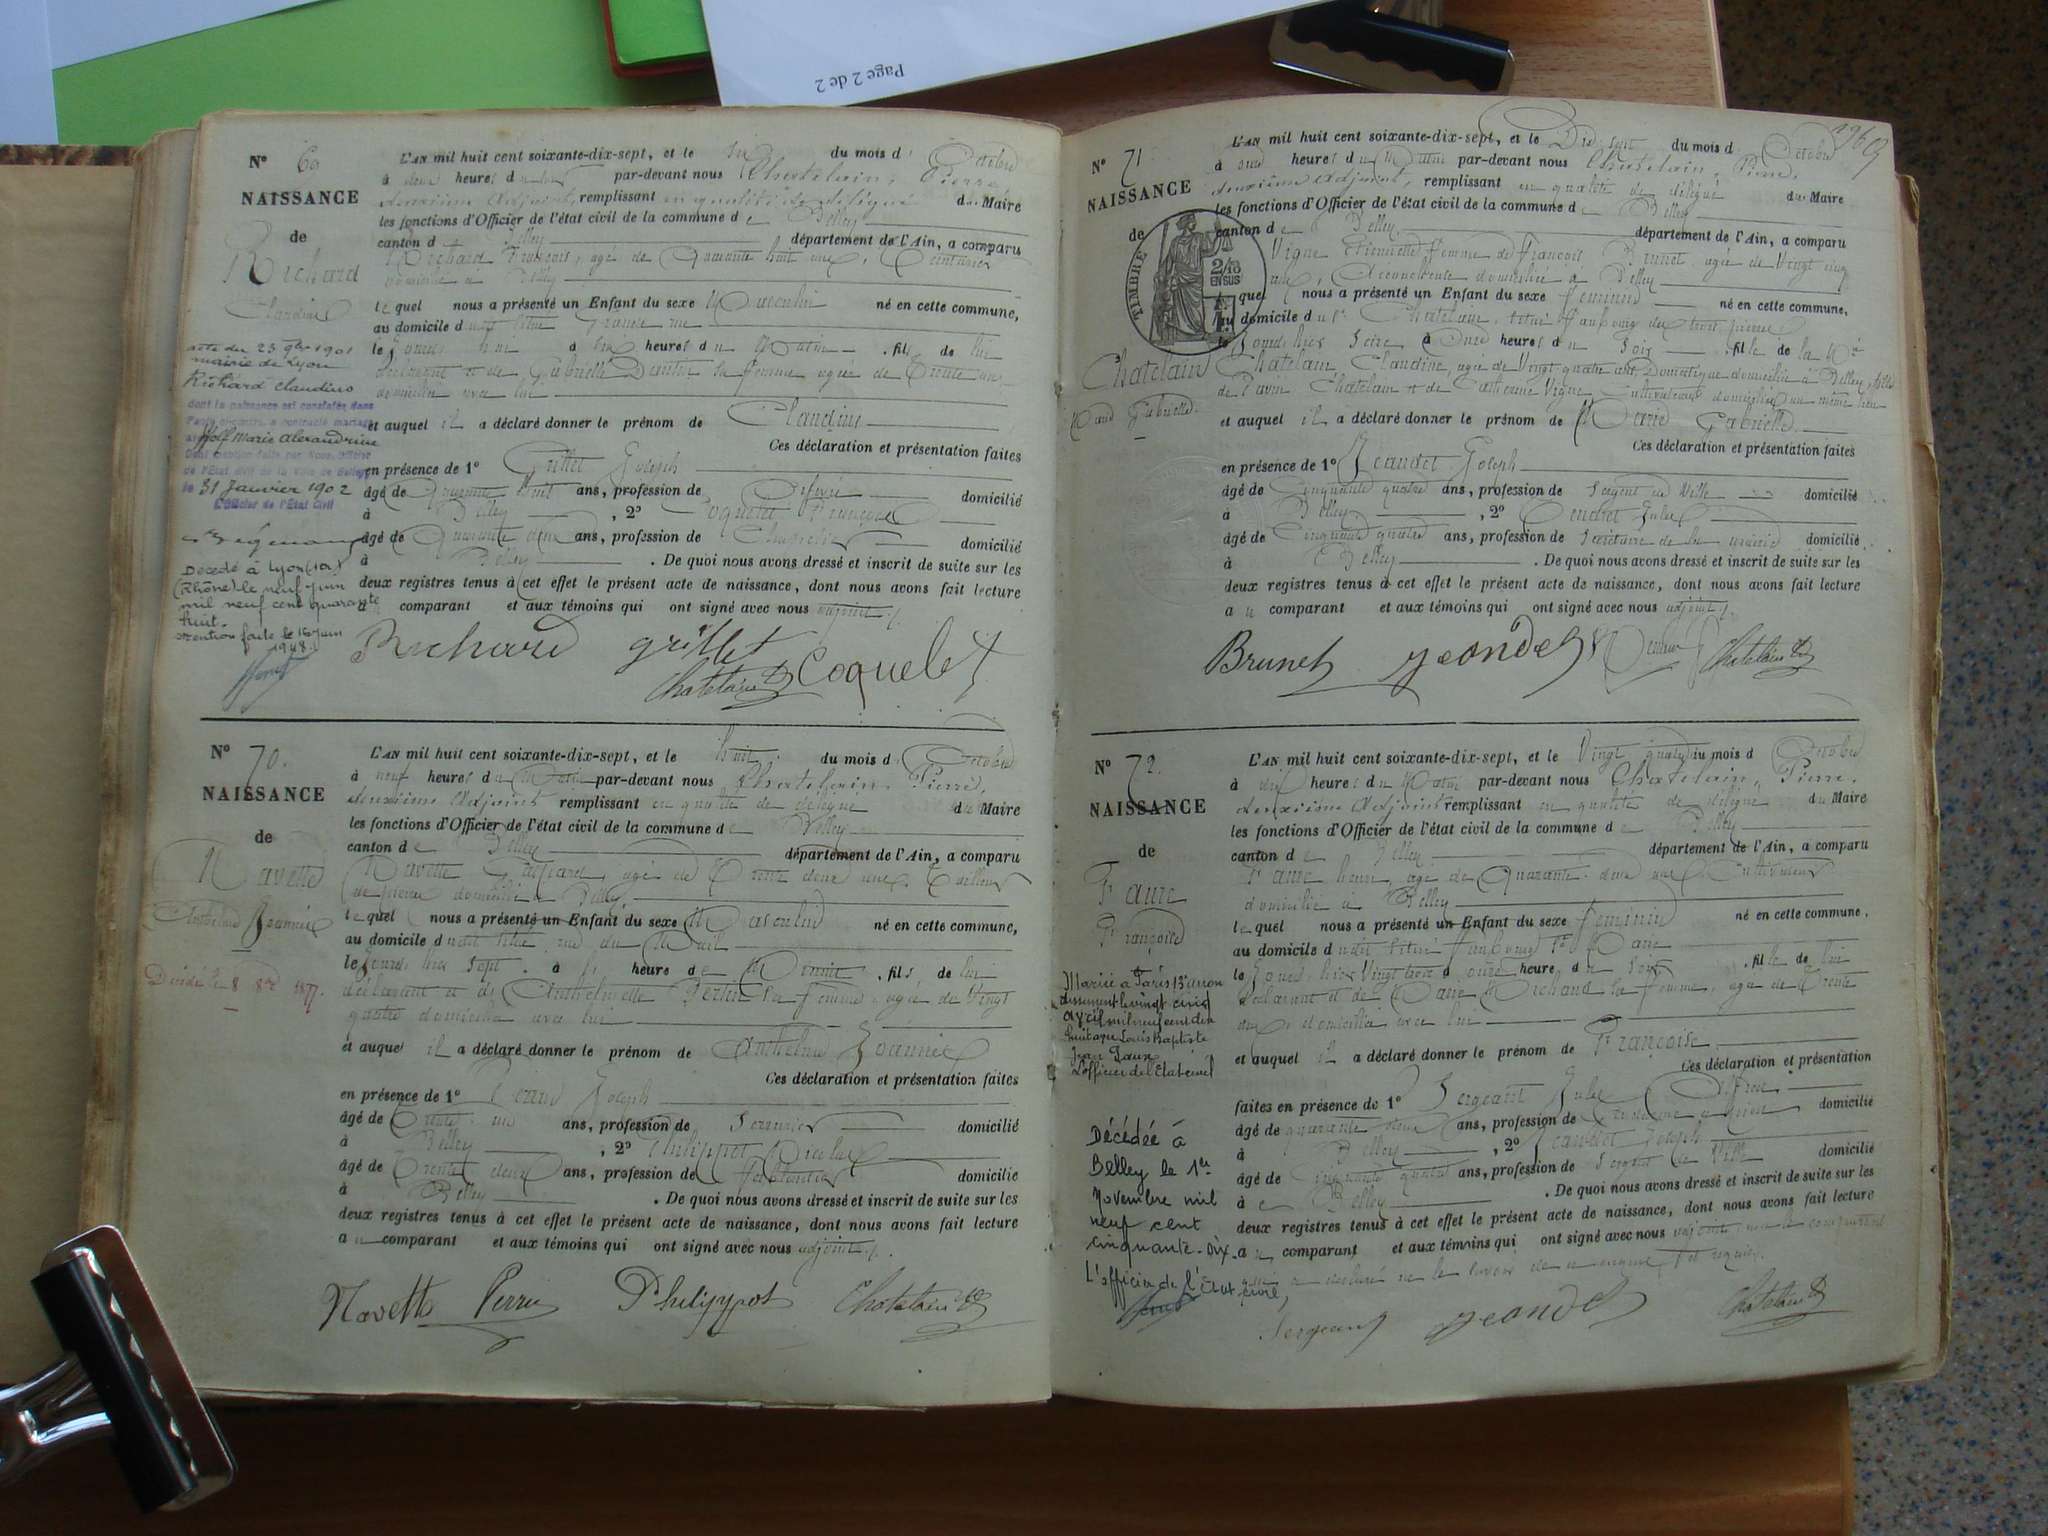 Page 2 de 2
N° 69
NAISSANCE
de
Richard
Claudius
acte du 23 9bre 1901
mairie de Lyon
Richard Claudius
dont la naissance est constatée dans
l'acte ci-contre, a contracté mariage
avec
Marie Alexandrine
Dont mention faite par Nous, Officier
de l'Etat civil de la Ville de Belley
le 31 Janvier 1902
L'Officier de l'Etat Civil
Décédé à Lyon
(Rhône) le neuf juin
mil neuf cent quarante
huit.
Mention faite le juin
1948.
L'AN mil huit cent soixante-dix-sept, et le six du mois d'Octobre
à heures du par-devant nous Chatelain, Pierre,
deuxième Adjoint, remplissant en qualité de délégué du Maire
les fonctions d'Officier de l'état civil de la commune de Belley
canton de Belley département de l'Ain, a comparu
Richard François, âgé de Quarante huit ans,
domicilié à Belley
lequel nous a présenté un Enfant du sexe Masculin né en cette commune,
au domicile dudit situé Grande rue
le à six heures du Matin fils de lui
déclarant et de Gabrielle sa femme agée de Trente un
domiciliée avec lui
et auquel il a déclaré donner le prénom de Claudius
Ces déclaration et présentation faites
en présence de 1° Grillet Joseph
âgé de Quarante huit ans, profession de domicilié
à Belley, 2° Coquelet François
âgé de Quarante ans, profession de domicilié
à Belley. De quoi nous avons dressé et inscrit de suite sur les
deux registres tenus à cet effet le présent acte de naissance, dont nous avons fait lecture
au comparant et aux témoins qui ont signé avec nous adjoint
Richard Grillet
Chatelain Coquelet
N° 70.
NAISSANCE
de
Navette
Anthelme Joannès
Décédé le 8 8bre 1877.
L'AN mil huit cent soixante-dix-sept, et le huit du mois d'Octobre
à neuf heures du Matin par-devant nous Chatelain, Pierre,
deuxième Adjoint remplissant en qualité de délégué du Maire
les fonctions d'Officier de l'état civil de la commune de Belley
canton de Belley département de l'Ain, a comparu
Navette Gaspard, agé de Trente deux ans, Tailleur
de pierre domicilié à Belley
lequel nous a présenté un Enfant du sexe Masculin né en cette commune,
au domicile dudit situé rue du Mail
le jour d'hier sept à heure de Minuit fils de lui
déclarant et de Anthelmette Bertin sa femme, agée de Vingt
quatre domiciliée avec lui
et auquel il a déclaré donner le prénom de Anthelme Joannès
Ces déclaration et présentation faites
en présence de 1° Perrin Joseph
âgé de Trente un ans, profession de Serrurier domicilié
à Belley, 2° Philippot Nicolas
âgé de Trente deux ans, profession de Ferblantier domicilié
à Belley. De quoi nous avons dressé et inscrit de suite sur les
deux registres tenus à cet effet le présent acte de naissance, dont nous avons fait lecture
au comparant et aux témoins qui ont signé avec nous adjoint
Navette Perrin Philippot Chatelain
N° 71.
NAISSANCE
de
TIMBRE
2/10
EN SUS
Chatelain
Marie Gabrielle
L'AN mil huit cent soixante-dix-sept, et le Dix sept du mois d'Octobre
à onze heures du Matin par-devant nous Chatelain, Pierre,
deuxième Adjoint, remplissant en qualité de délégué du Maire
les fonctions d'Officier de l'état civil de la commune de Belley
canton de Belley département de l'Ain, a comparu
Vigne Pierrette femme de François Brunet, agée de Vingt cinq
ans, Accoucheuse domiciliée à Belley
lequel nous a présenté un Enfant du sexe féminin né en cette commune,
au domicile du Sr Chatelain, situé faubourg des trois pierres
le jour d'hier Seize à Onze heures du Soir fille de la
Chatelain Claudine, agée de Vingt quatre ans Domestique domiciliée à Belley, fille
de Pavin Chatelain et de Catherine Vigne cultivateurs domiciliés au même lieu
et auquel il a déclaré donner le prénom de Marie Gabrielle.
Ces déclaration et présentation faites
en présence de 1° Jeandet Joseph
âgé de Cinquante quatre ans, profession de Sergent de Ville domicilié
à Belley, 2° Tendret Jules
âgé de Cinquante quatre ans, profession de Secrétaire de la mairie domicilié
à Belley. De quoi nous avons dressé et inscrit de suite sur les
deux registres tenus à cet effet le présent acte de naissance, dont nous avons fait lecture
au comparant et aux témoins qui ont signé avec nous adjoint
Brunet Jeandet Chatelain
N° 72.
NAISSANCE
de
Faure
Françoise
Mariée à Paris 13e arron
dissement le vingt cinq
avril mil neuf cent dix
huit avec Louis Baptiste
Jean
L'officier de l'Etat civil
Décédée à
Belley le 1er
Novembre mil
neuf cent
cinquante-dix.
L'officier de l'Etat civil,
L'AN mil huit cent soixante-dix-sept, et le Vingt quatre du mois d'Octobre
à dix heures du Matin par-devant nous Chatelain, Pierre,
deuxième Adjoint remplissant en qualité de délégué du Maire
les fonctions d'Officier de l'état civil de la commune de Belley
canton de Belley département de l'Ain, a comparu
Faure agé de Quarante deux ans Cultivateur
domicilié à Belley
lequel nous a présenté un Enfant du sexe féminin né en cette commune,
au domicile dudit situé faubourg
le jour d'hier Vingt trois à onze heure du Soir fille de lui
déclarant et de Marie Michaud sa femme, agée de Trente
domiciliée avec lui
et auquel il a déclaré donner le prénom de Françoise.
Ces déclaration et présentation
faites en présence de 1° Sergeant Jules
âgé de quarante ans, profession de domicilié
à Belley, 2° Jeandet Joseph
âgé de Cinquante quatre ans, profession de Sergent de Ville domicilié
à Belley. De quoi nous avons dressé et inscrit de suite sur les
deux registres tenus à cet effet le présent acte de naissance, dont nous avons fait lecture
au comparant et aux témoins qui ont signé avec nous adjoint, non le comparant
qui a déclaré ne le savoir de ce enquis et requis.
Sergeant Jeandet Chatelain